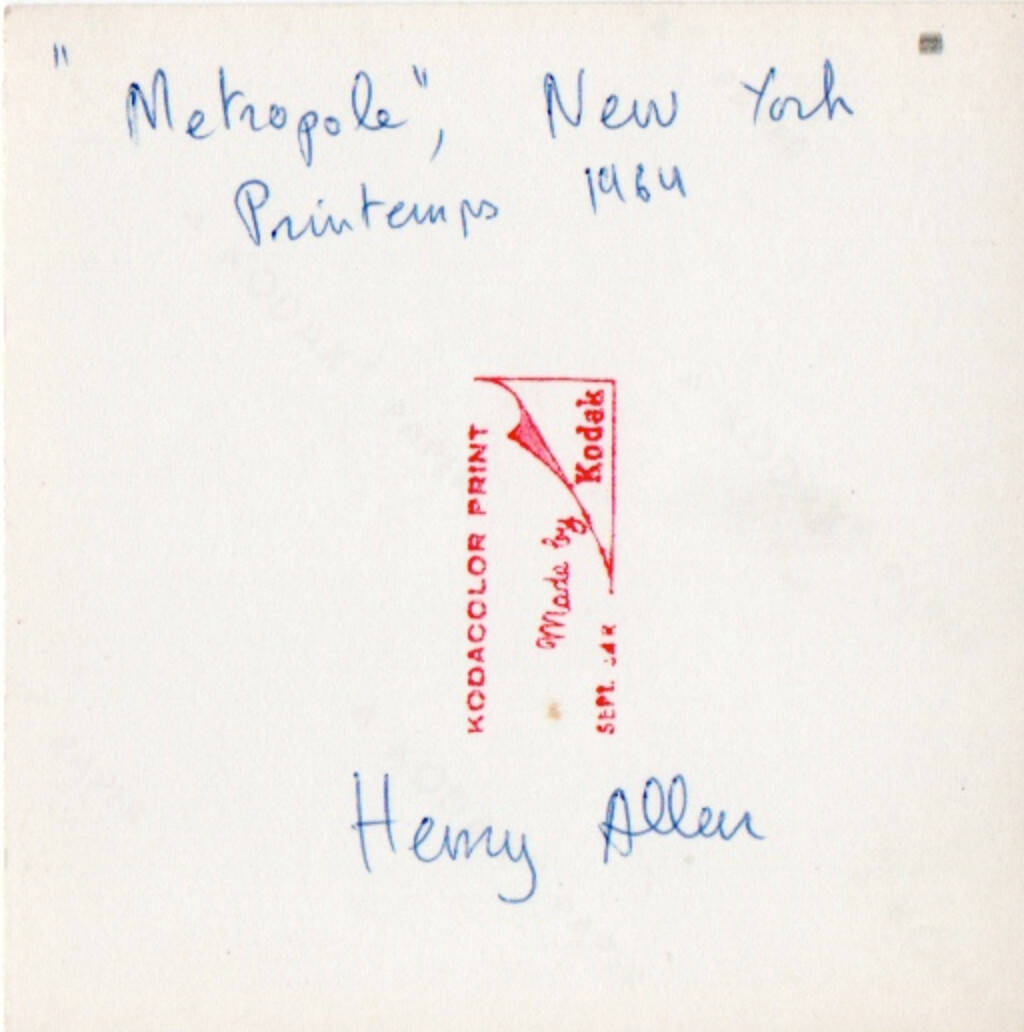 "Metropole", New York
Printemps 1964
KODACOLOR PRINT
Made by
Kodak
SEPT.
Henry Allen